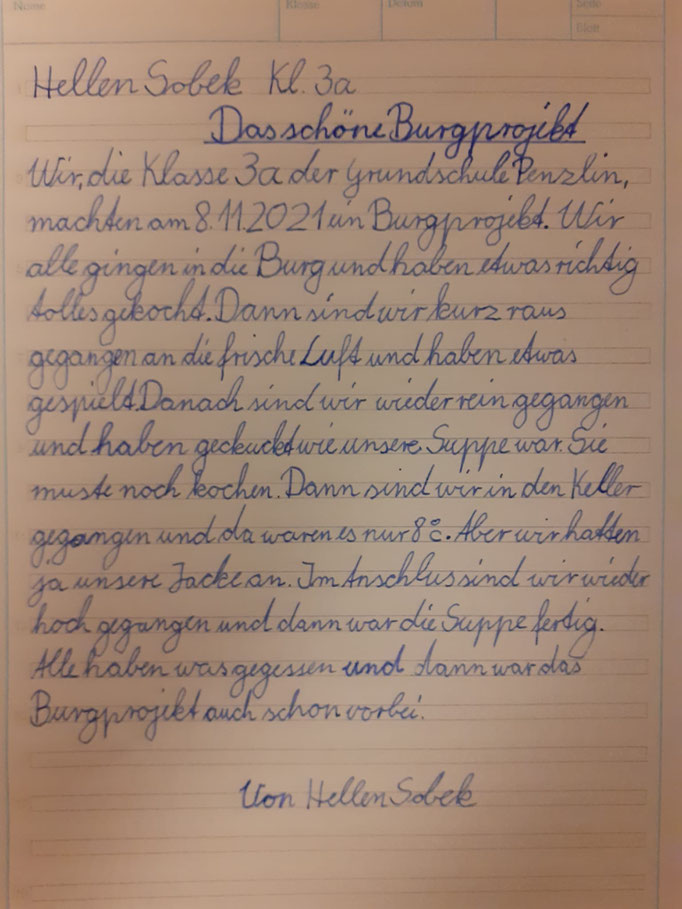 Name Klasse Datum Seite
Blatt
Hellen Sobek Kl. 3a
Das schöne Burgprojekt
Wir, die Klasse 3a der Grundschule Penzlin,
machten am 8.11.2021 ein Burgprojekt. Wir
alle gingen in die Burg und haben etwas richtig
tolles gekocht. Dann sind wir kurz raus
gegangen an die frische Luft und haben etwas
gespielt. Danach sind wir wieder rein gegangen
und haben geckuckt wie unsere Suppe war. Sie
muste noch kochen. Dann sind wir in den Keller
gegangen und da waren es nur 8°C. Aber wir hatten
ja unsere Jacke an. Im Anschlus sind wir wieder
hoch gegangen und dann war die Suppe fertig.
Alle haben was gegessen und dann war das
Burgprojekt auch schon vorbei.
Von Hellen Sobek